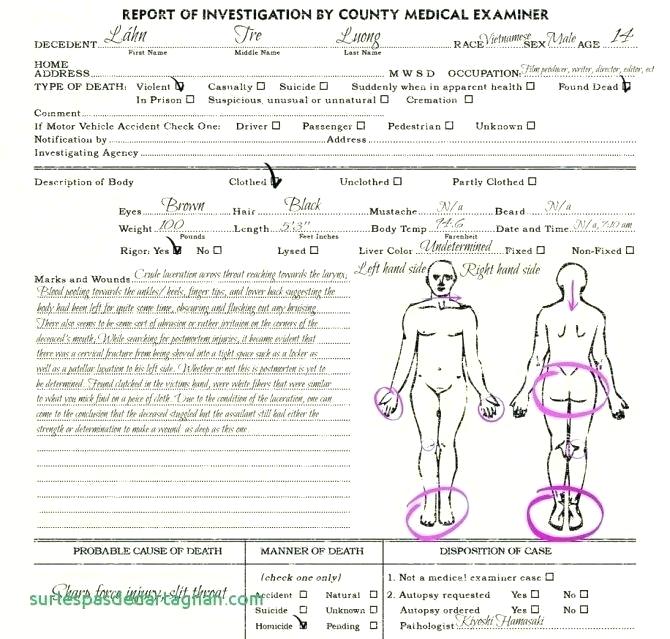 REPORT OF INVESTIGATION BY COUNTY MEDICAL EXAMINER
DECEDENT Láhn Tre Luong RACE Vietnamese SEX Male AGE 14
First Name Middle Name Last Name
HOME
ADDRESS M W S D OCCUPATION: Film producer, writer, director, editor, ect
TYPE OF DEATH: Violent Casualty Suicide Suddenly when in apparent health Found Dead
In Prison Suspicious, unusual or unnatural Cremation
Comment
If Motor Vehicle Accident Check One: Driver Passenger Pedestrian Unknown
Notification by Address
Investigating Agency
Description of Body Clothed Unclothed Partly Clothed
Eyes Brown Hair Black Mustache N/a Beard N/a
Weight 100 Length 5'3" Body Temp 94.6 Date and Time N/a, 7:10 am
Pounds Feet Inches Farenheit
Rigor: Yes No Lysed Liver Color Undetermined Fixed Non-Fixed
Marks and Wounds Crude laceration across throat reaching towards the larynx;
Left hand side Right hand side
Blood pooling towards the ankles/ heels, finger tips, and lower back suggesting the
body had been left for quite some time, obscuring and flushing out any bruising.
There also seems to be some sort of abrasion or rather irritaion on the corners of the
deceased's mouth; While searching for postmortem injuries, it became evident that
there was a cervical fracture from being shoved into a tight space such as a locker as
well as a patellar luxation to his left side. Whether or not this is postmortem is yet to
be determined. Found clutched in the victims hand, were white fibers that were similar
to what you mick find on a peice of cloth. Due to the condition of the laceration, one can
come to the conclusion that the deceased stuggled but the assailant still had either the
strength or determination to make a wound as deep as this one.
PROBABLE CAUSE OF DEATH MANNER OF DEATH DISPOSITION OF CASE
(check one only) 1. Not a medical examiner case
Sharp force injury, slit throat
surlespasdedartagnan.com
Accident Natural 2. Autopsy requested Yes No
Suicide Unknown Autopsy ordered Yes No
Homicide Pending Pathologist Kiyoshi Hamasaki